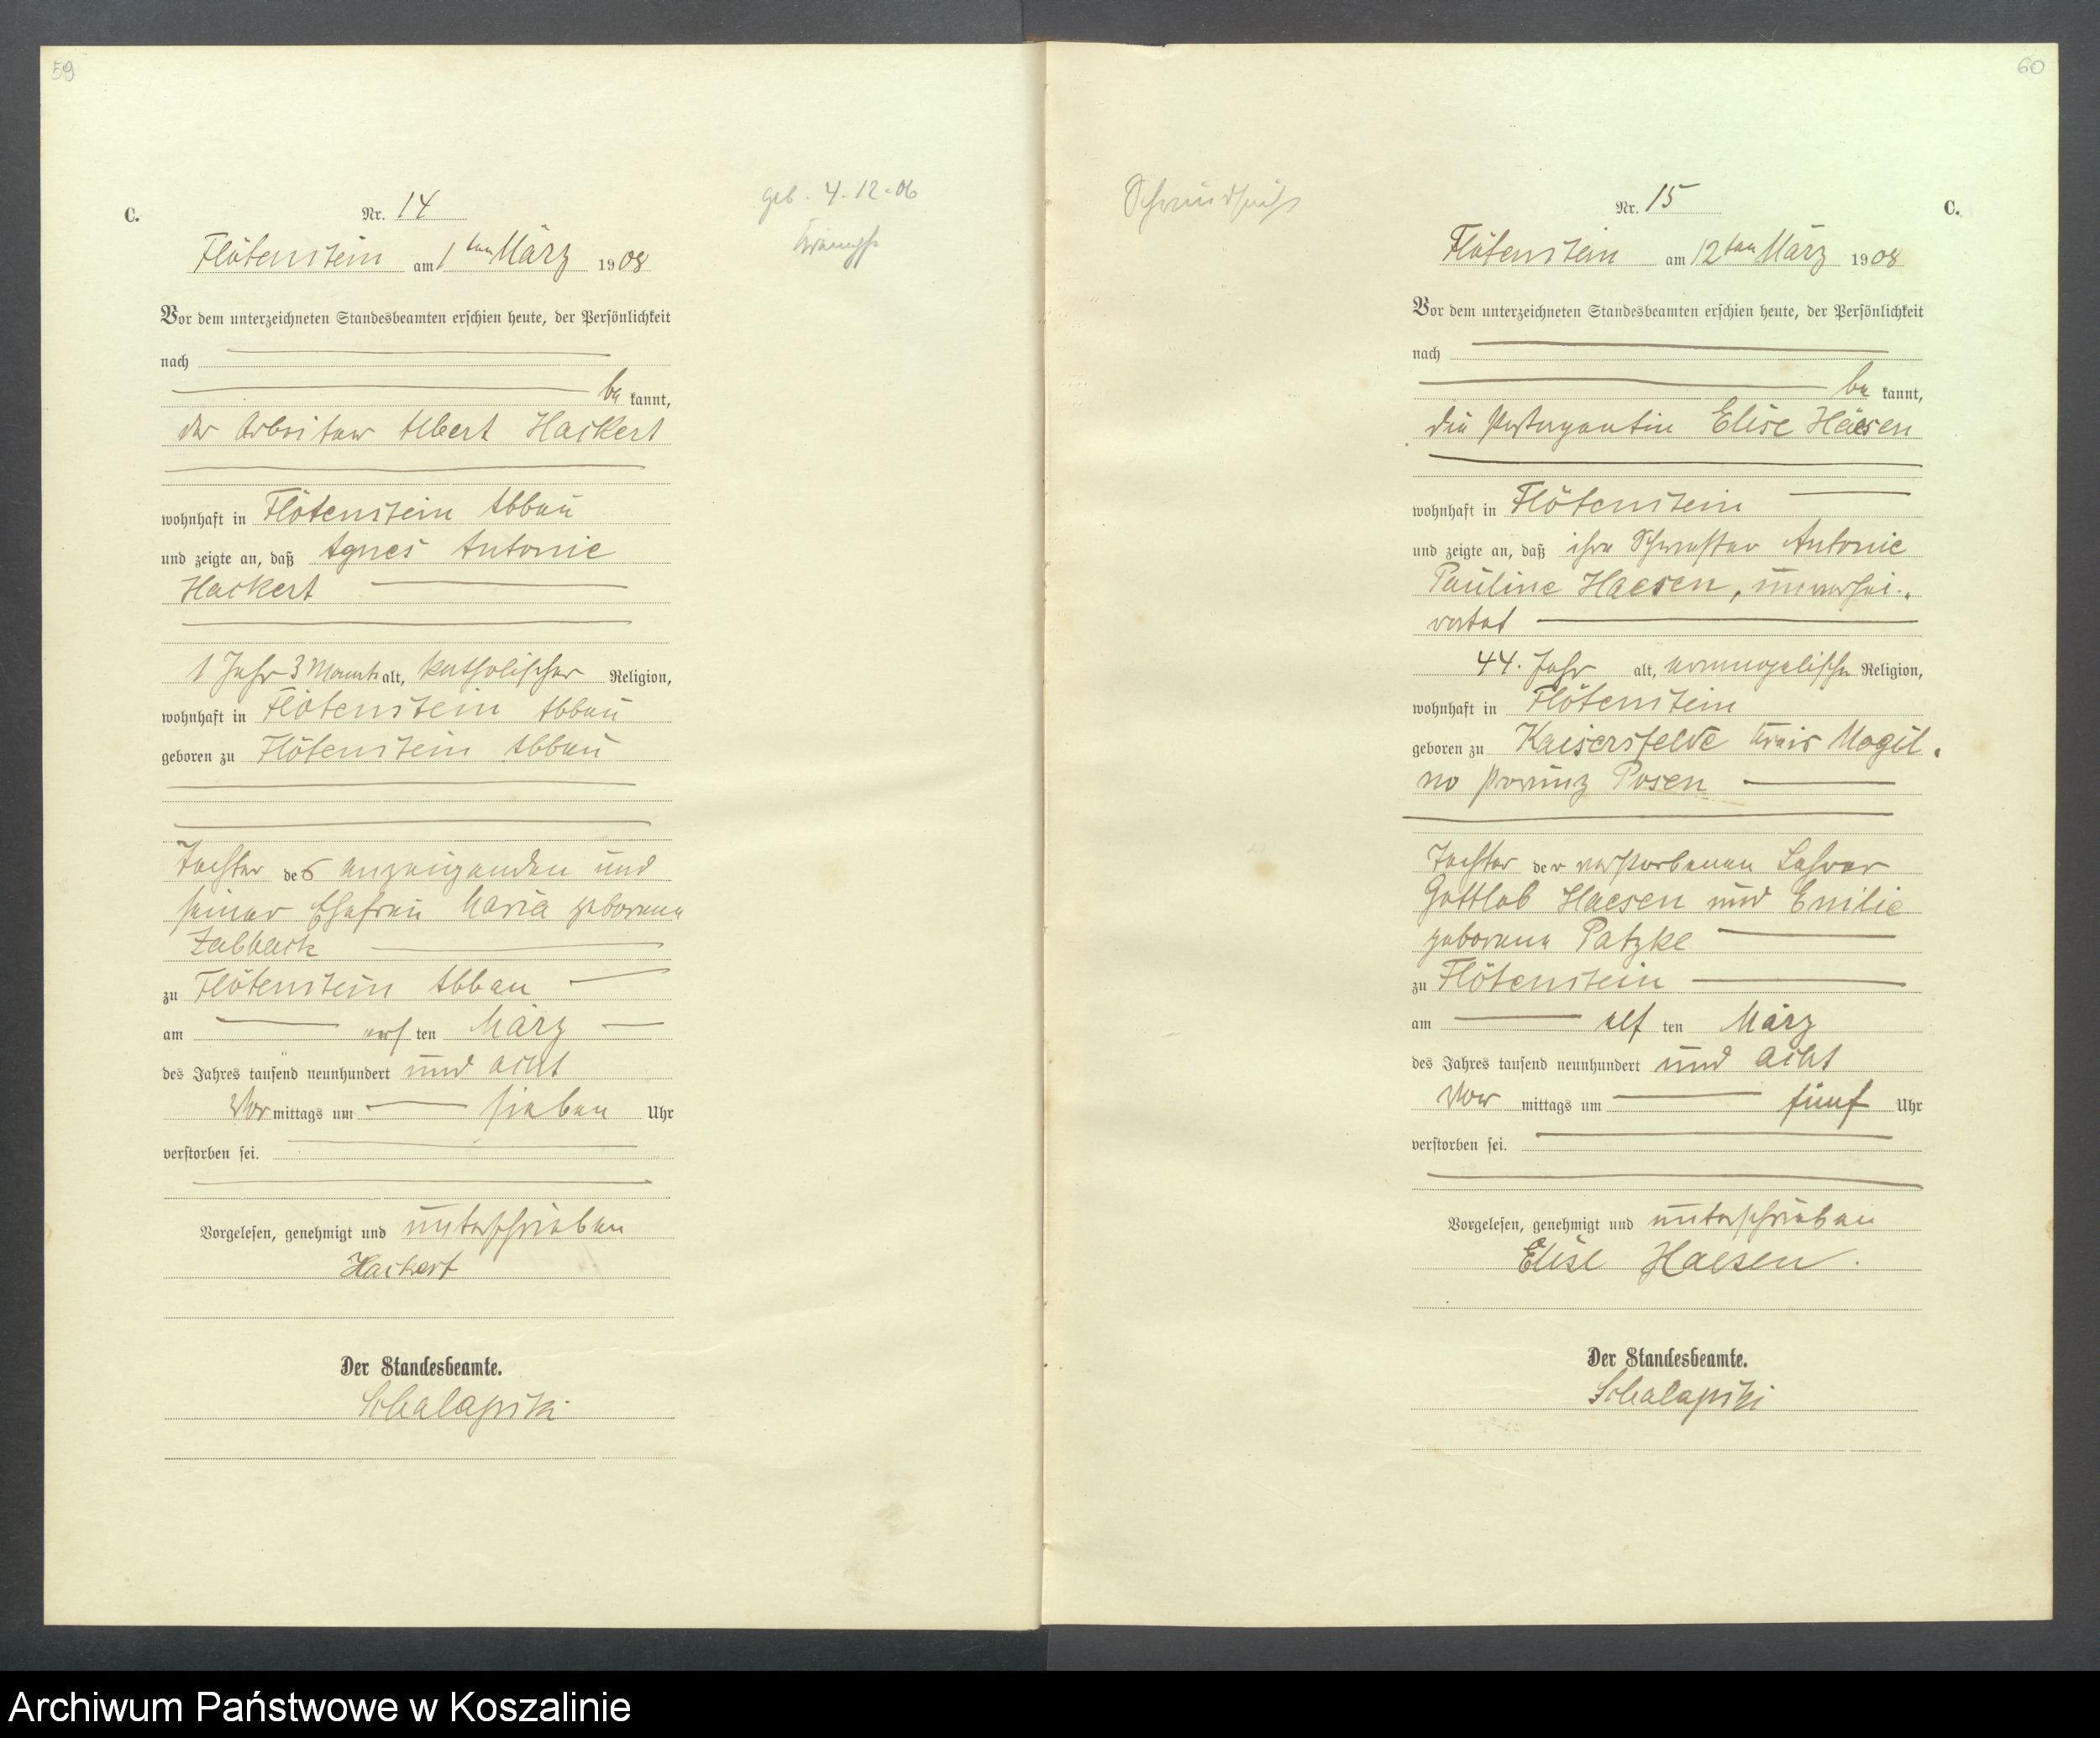 59
C.
Nr. 14
geb. 4.12.06
Krämpfe
Flötenstein am 1ten März 1908
Vor dem unterzeichneten Standesbeamten erschien heute, der Persönlichkeit
nach
be kannt,
der Arbeiter Albert Hackert
wohnhaft in Flötenstein Abbau
und zeigte an, daß Agnes Antonie
Hackert
1 Jahr 3 Monate alt, katholischer Religion,
wohnhaft in Flötenstein Abbau
geboren zu Flötenstein Abbau
Tochter des Anzeigenden und
seiner Ehefrau Maria geborene
zu Flötenstein Abbau
am ersten März
des Jahres tausend neunhundert und acht
Vor mittags um sieben Uhr
verstorben sei.
Vorgelesen, genehmigt und unterschrieben
Hackert
Der Standesbeamte.
Schalapski
60
C.
Schwindsucht
Nr. 15
Flötenstein am 12ten März 1908
Vor dem unterzeichneten Standesbeamten erschien heute, der Persönlichkeit
nach
be kannt,
die Postagentin Elise Haesen
wohnhaft in Flötenstein
und zeigte an, daß ihre Schwester Antonie
Pauline Haesen, unverhei-
ratet
44. Jahr alt, evangelischer Religion,
wohnhaft in Flötenstein
geboren zu Kaisersfelde Kreis Mogil-
no Provinz Posen
Tochter der verstorbenen Lehrer
Gottlob Haesen und Emilie
geborene Patzke
zu Flötenstein
am elf ten März
des Jahres tausend neunhundert und acht
Vor mittags um fünf Uhr
verstorben sei.
Vorgelesen, genehmigt und unterschrieben
Elise Haesen.
Der Standesbeamte.
Schalapski
Archiwum Państwowe w Koszalinie